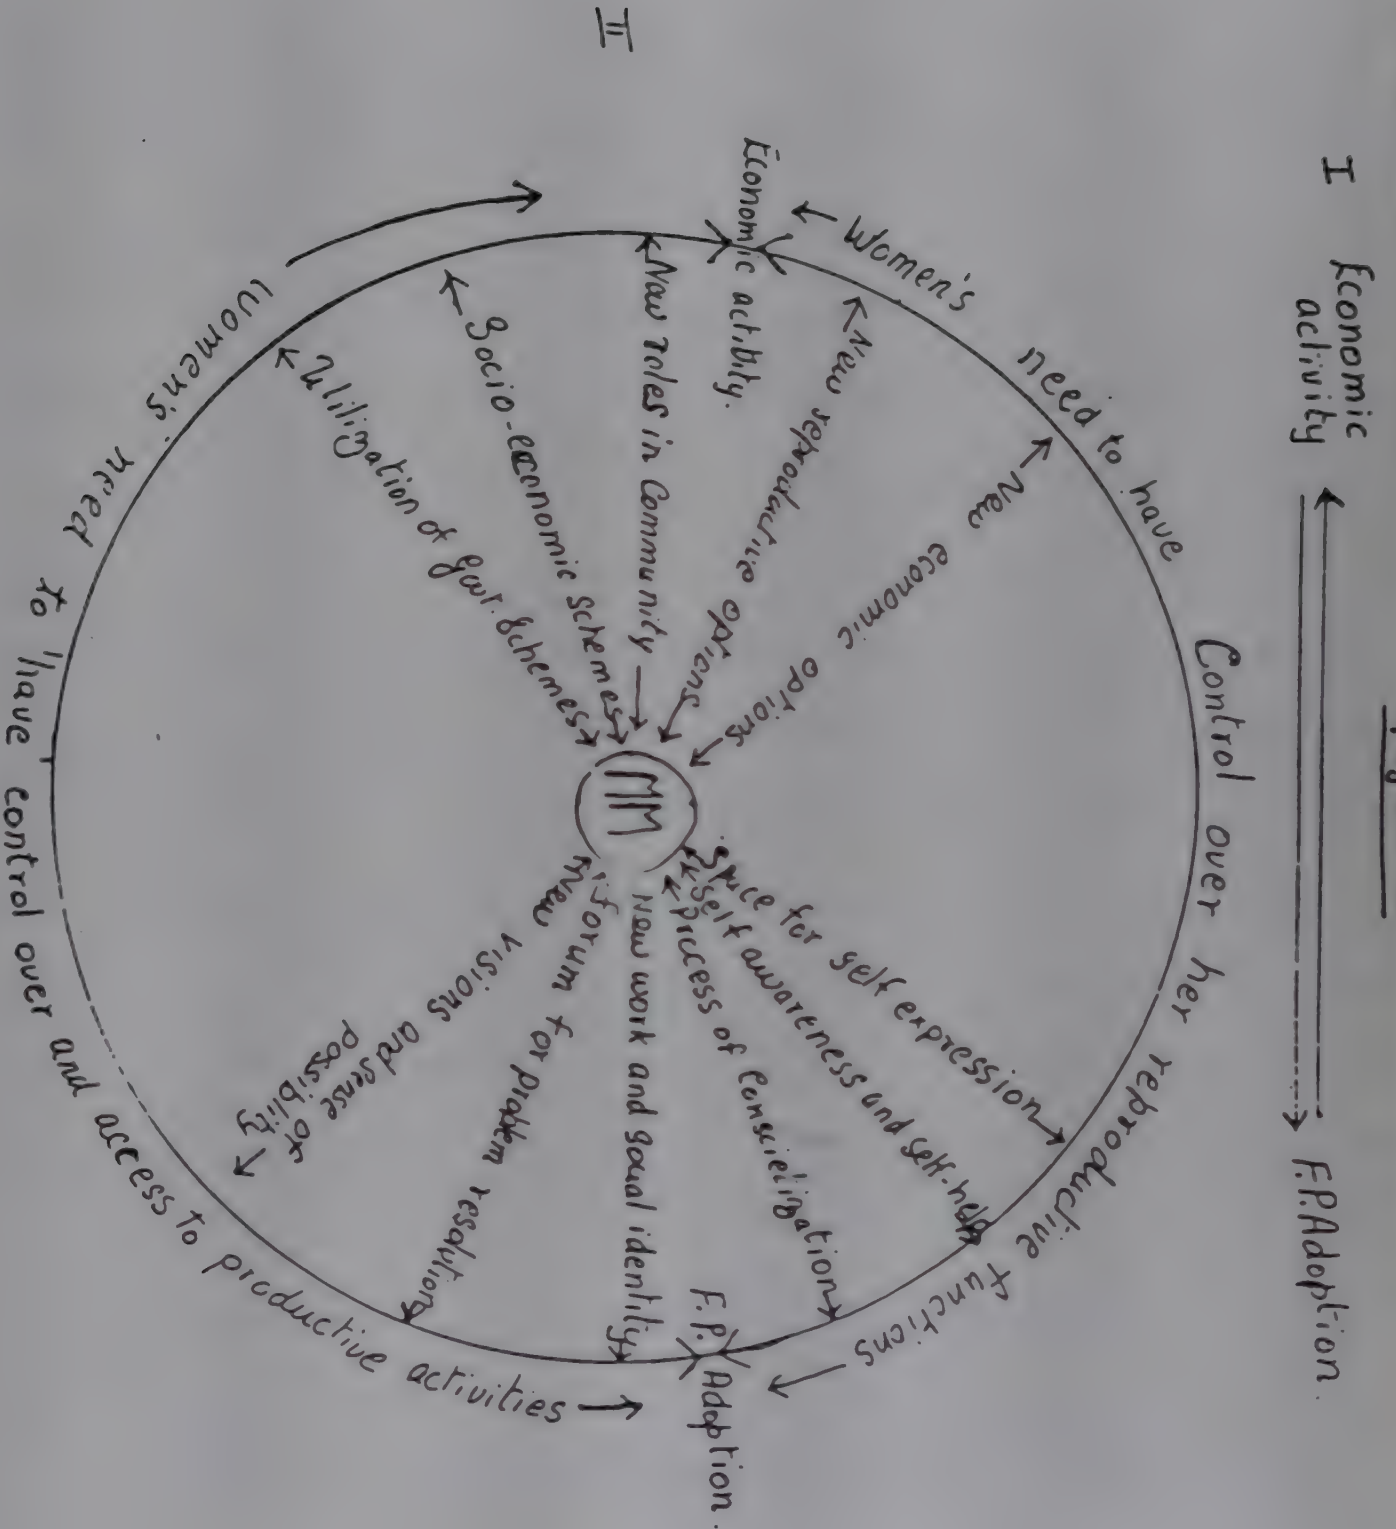 I Economic
activity
F.P.Adoption.
II
Women's need to have Control over her reproductive functions
Economic activity.
New economic options
New reproductive options
New roles in Community
Socio-economic schemes
Utilization of Govt. Schemes
MM
Space for self expression
Self awareness and self-help
process of
New work and
identity
forum for problem resolution
New visions and sense of
possiblity
F.P. Adoption.
womens' need to have control over and access to productive activities